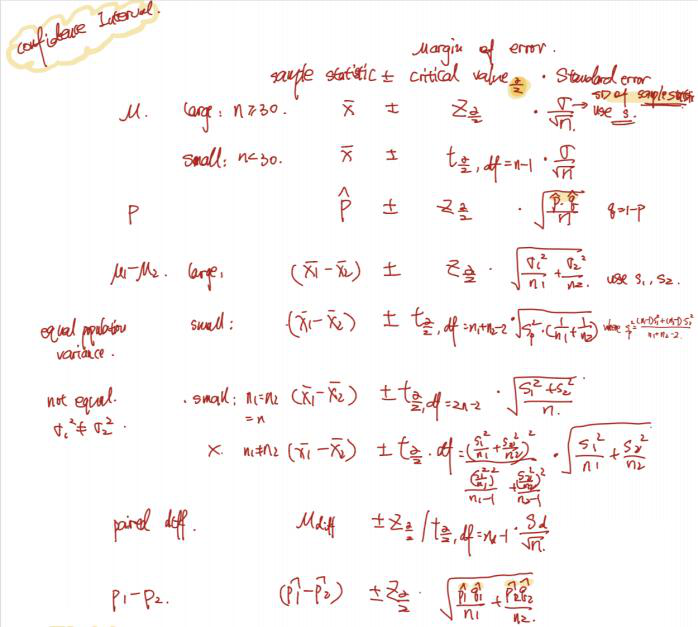 Confidence Interval.
Margin of error.
sample statistic ± critical value α/2 · Standard error
SD of sample statistic
μ. large: n ≥ 30. x̄ ± Z α/2 · σ/√n → use s.
small: n < 30. x̄ ± t α/2, df = n-1 · σ/√n
P p̂ ± Z α/2 · √(p̂·q̂/n) q = 1-p
μ1-μ2. large: (x̄1 - x̄2) ± Z α/2 · √(σ1²/n1 + σ2²/n2) use s1, s2.
equal population variance. small: (x̄1 - x̄2) ± t α/2, df = n1+n2-2 · √(Sp²·(1/n1 + 1/n2)) where Sp² = ((n1-1)S1²+(n2-1)S2²)/(n1+n2-2)
not equal. σ1² ≠ σ2² · small: n1=n2=n (x̄1 - x̄2) ± t α/2, df = 2n-2 · √((S1²+S2²)/n)
x. n1≠n2 (x̄1 - x̄2) ± t α/2 · df = (S1²/n1 + S2²/n2)² / ((S1²/n1)²/(n1-1) + (S2²/n2)²/(n2-1)) · √(S1²/n1 + S2²/n2)
paired diff. μdiff ± Z α/2 / t α/2, df = nd-1 · Sd/√n
P1-P2. (p̂1 - p̂2) ± Z α/2 · √(p̂1q̂1/n1 + p̂2q̂2/n2)